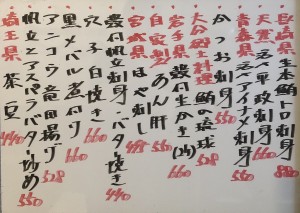 長崎県 生本鮪トロ刺身 880
天然 平政刺身 550
青森県 アイナメ刺身 550
かつお刺身 550
大分郷土料理 鯵の琉球 528
岩手県 殻付生かき(1ヶ) 550
自家製 あん肝 660
宮城県 ほや刺し 495
殻付帆立 刺身・バター焼き 各550
穴子白焼き 660
黒メバル煮付 660
アンコウ竜田揚げ 528
帆立とアスパラバタ炒め 550
埼玉県 茶豆 440